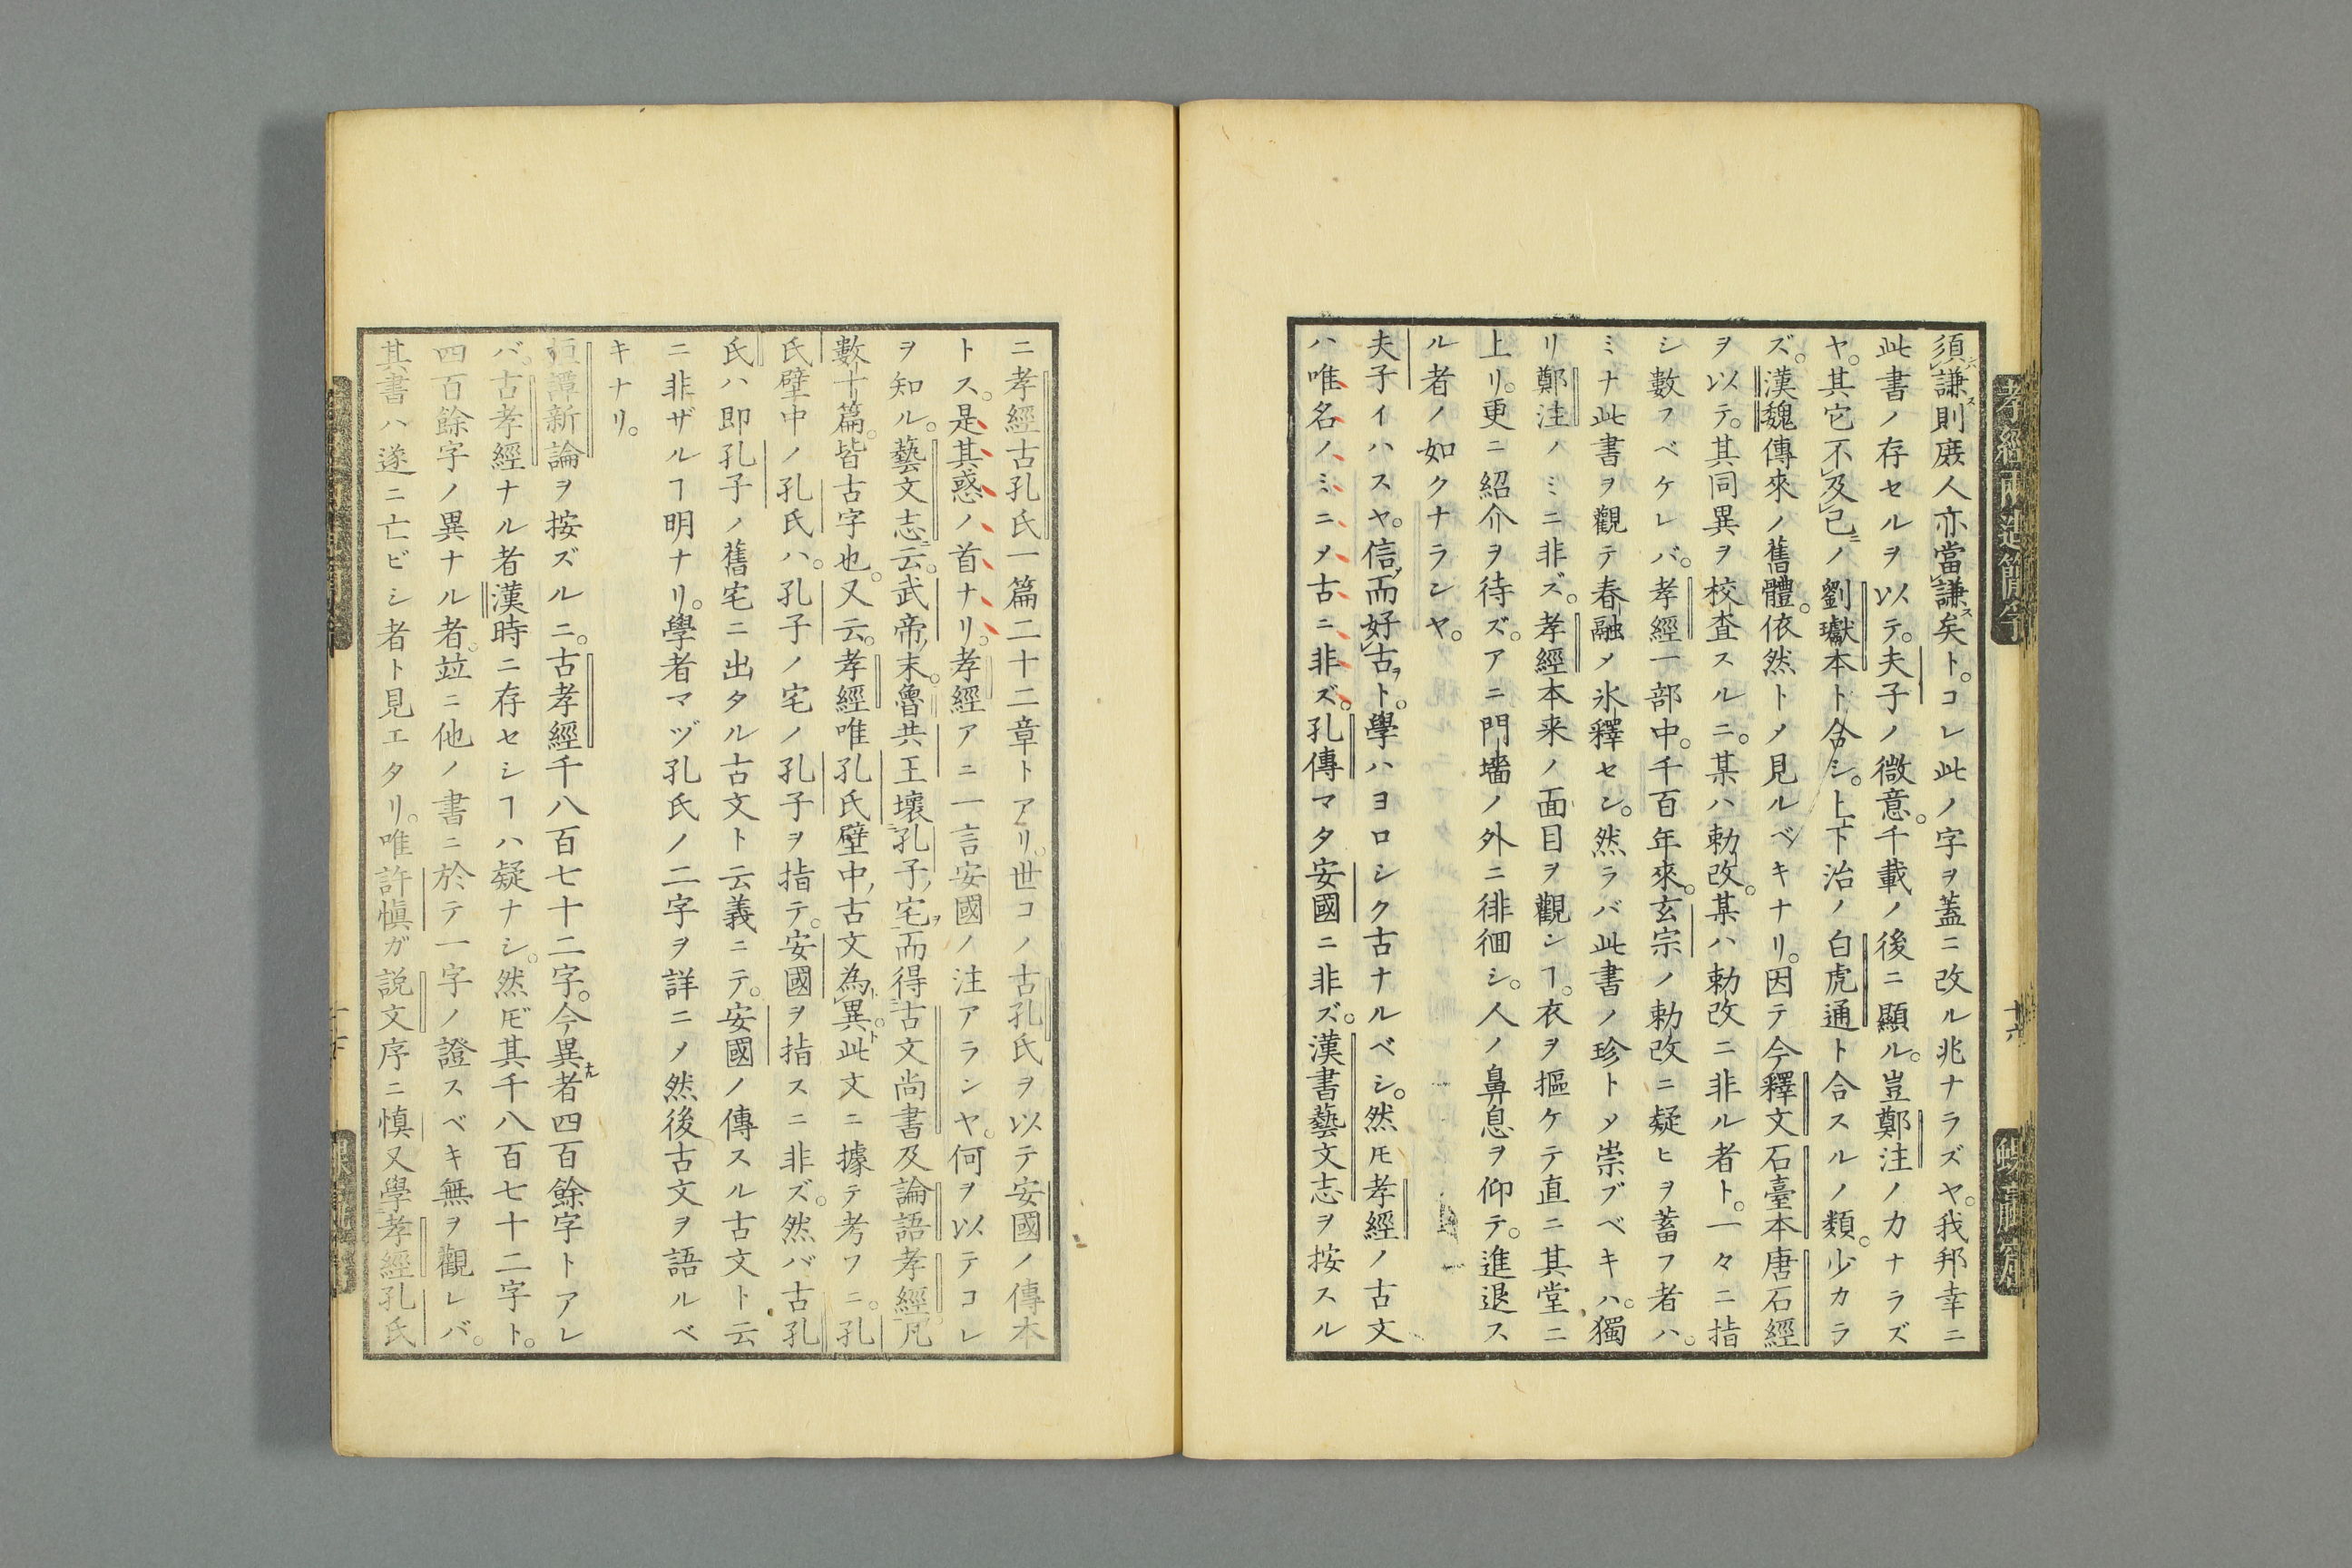 須謙則庻人亦當謙矣ト。コレ此ノ字ヲ蓋ニ改ル兆ナラズヤ。我邦幸ニ
此書ノ存セルヲ以テ。夫子ノ微意。千載ノ後ニ顯ル。豈鄭注ノカナラズ
ヤ。其它不及己ノ劉瓛本ト合シ。上下治ノ白虎通ト合スルノ類。少カラ
ズ。漢魏傳來ノ舊體。依然トメ見ルベキナリ。因テ今釋文石臺本唐石經
ヲ以テ。其同異ヲ校査スルニ。某ハ勅改。某ハ勅改ニ非ル者ト。一々ニ指
シ數フベケレバ。孝經一部中。千百年來。玄宗ノ勅改ニ疑ヒヲ蓄フ者ハ。
ミナ此書ヲ觀テ春融メ氷釋セン。然ラバ此書ノ珍トメ崇ブベキハ。獨
リ鄭注ノミニ非ズ。孝經本来ノ面目ヲ觀ンヿ。衣ヲ摳ケテ直ニ其堂ニ
上リ。更ニ紹介ヲ待ズ。アニ門墻ノ外ニ徘徊シ。人ノ鼻息ヲ仰テ。進退ス
ル者ノ如クナランヤ。
夫子イハスヤ。信而好古ト。學ハヨロシク古ナルベシ。然𪜈孝經ノ古文
ハ唯名ノミニメ古ニ非ズ。孔傳マタ安國ニ非ズ。漢書藝文志ヲ按スル
ニ孝經古孔氏一篇二十二章トアリ。世コノ古孔氏ヲ以テ安國ノ傳本
トス。是其惑ノ首ナリ。孝經アニ一言安國ノ注アランヤ。何ヲ以テコレ
ヲ知ル。藝文志云。武帝末。魯共王壞孔子宅而得古文尚書及論語孝經。凡
數十篇。皆古字也。又云。孝經唯孔氏壁中古文為異。此文ニ據テ考フニ。孔
氏壁中ノ孔氏ハ。孔子ノ宅ノ孔子ヲ指テ。安國ヲ指スニ非ズ。然バ古孔
氏ハ即孔子ノ舊宅ニ出タル古文ト云義ニテ。安國ノ傳スル古文ト云
ニ非ザルヿ明ナリ。學者マヅ孔氏ノ二字ヲ詳ニメ然後古文ヲ語ルベ
キナリ。
桓譚新論ヲ按ズルニ。古孝經千八百七十二字。今異者四百餘字トアレ
バ。古孝經ナル者漢時ニ存セシヿハ疑ナシ。然𪜈其千八百七十二字ト。
四百餘字ノ異ナル者。竝ニ他ノ書ニ於テ一字ノ證スベキ無ヲ觀レバ。
其書ハ遂ニ亡ビシ者ト見エタリ。唯許慎ガ説文序ニ慎又學孝經孔氏